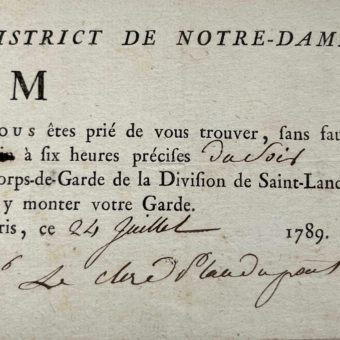 ISTRICT DE NOTRE-DAM
M
OUS êtes prié de vous trouver, sans fau
à six heures précises du Soir
orps-de-Garde de la Division de Saint-Land
y monter votre Garde.
ris, ce 24 Juillet 1789.
Le clerc